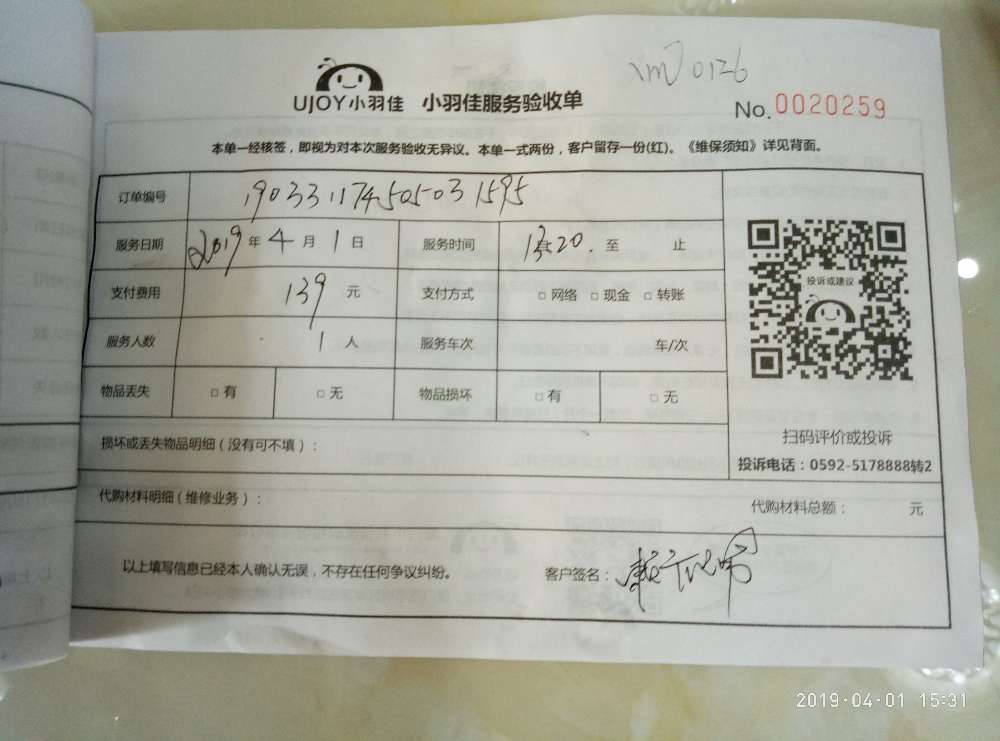 xm0126
UJOY小羽佳 小羽佳服务验收单
No.0020259
本单一经核签，即视为对本次服务验收无异议。本单一式两份，客户留存一份(红)。《维保须知》详见背面。
订单编号 190331174505031595
服务日期 2019年4月1日 服务时间 13:20.至 止
投诉或建议
支付费用 139元 支付方式 □网络 □现金 □转账
服务人数 1人 服务车次 车/次
物品丢失 □有 □无 物品损坏 □有 □无
扫码评价或投诉
损坏或丢失物品明细（没有可不填）：
投诉电话：0592-5178888转2
代购材料明细（维修业务）： 代购材料总额： 元
以上填写信息已经本人确认无误，不存在任何争议纠纷。 客户签名：
2019-04-01 15:31